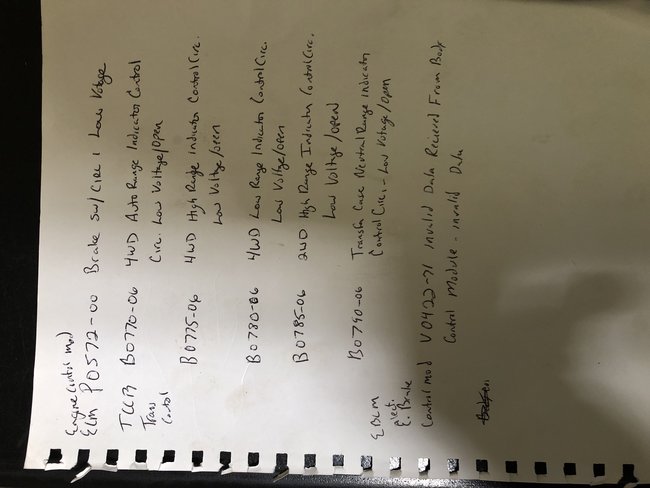 Engine Control Mod
ECM P0572-00 Brake Sw/Circ 1 Low Voltage
TCCM B0770-06 4WD Auto Range Indicator Control
Trans. Circ. Low Voltage/Open
Control
B0775-06 4WD High Range Indicator Control Circ.
Low Voltage/open
B0780-06 4WD Low Range Indicator Control Circ.
Low Voltage/open
B0785-06 2WD High Range Indicator Control Circ.
Low Voltage/open
B0790-06 Transfer Case Neutral Range Indicator
Control Circ. - Low Voltage/Open
EBCM
elect.
E. Brake
Control mod V0422-71 invalid Data Recieved From Body
Control Module - invalid Data